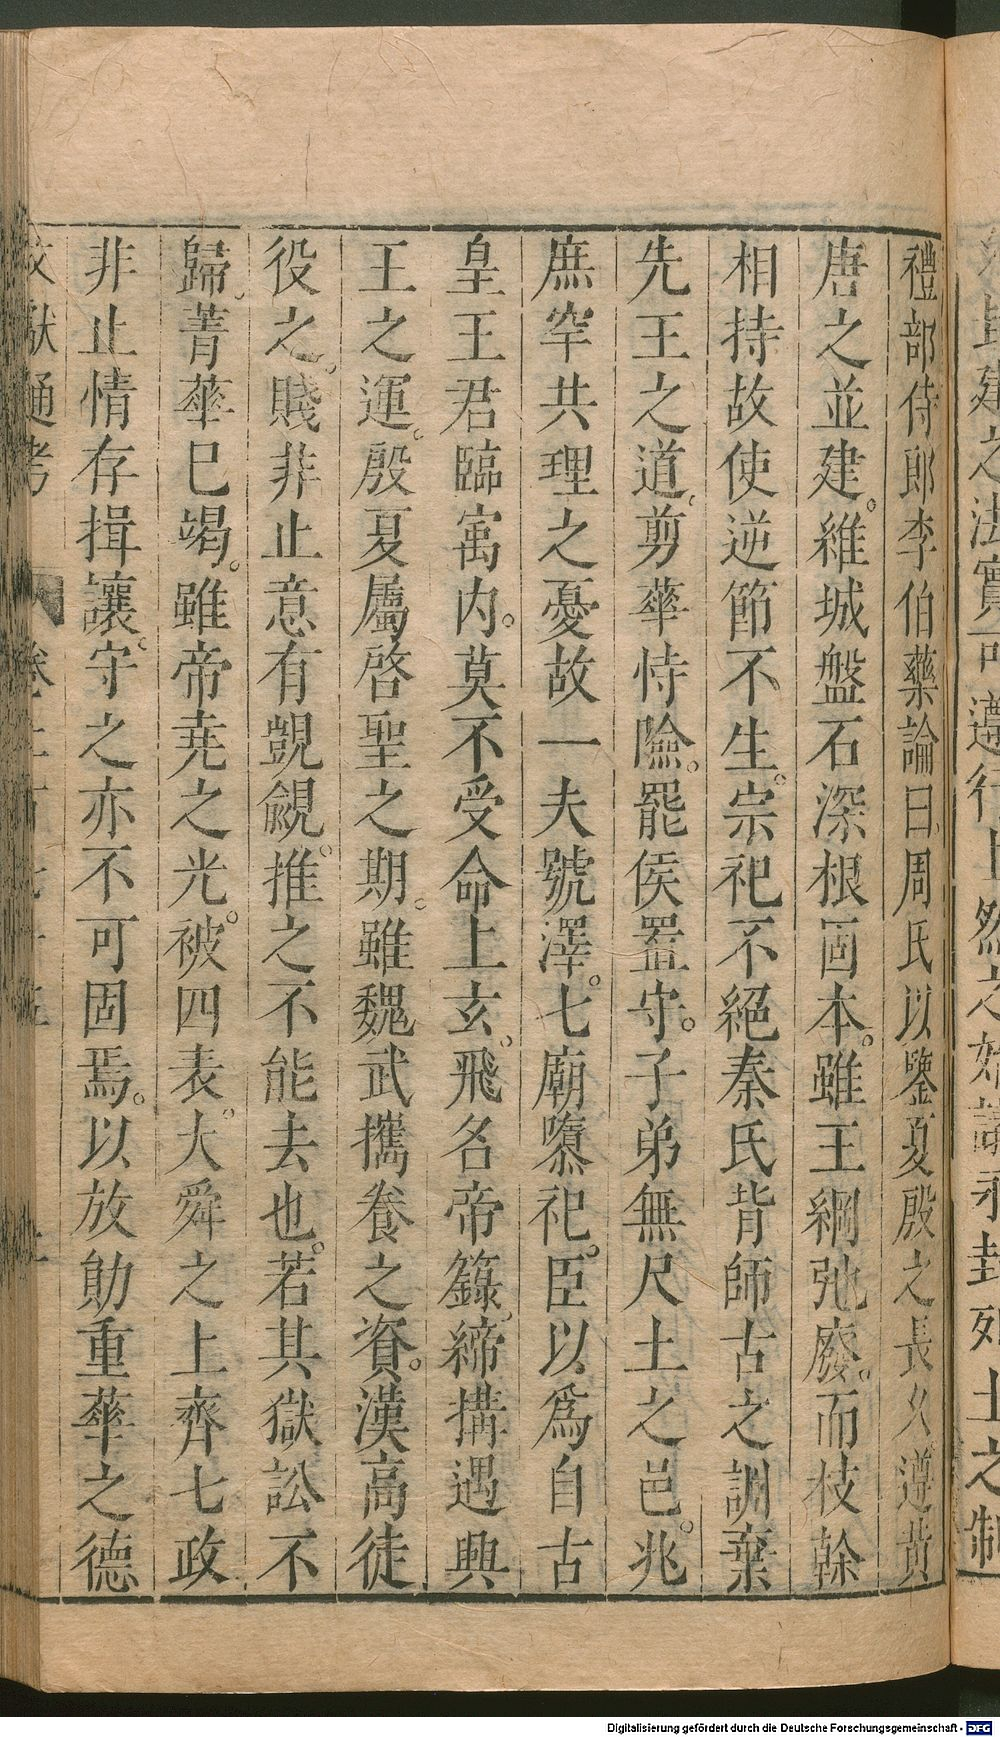 禮部侍郎李伯藥論曰周氏以鑒夏殷之長久遵黃
唐之並建。維城盤石深根固本。雖王綱弛廢。而枝幹
相持故使逆節不生。宗祀不絕秦氏背師古之訓棄
先王之道。剪華恃險。罷侯置守。子弟無尺土之邑。兆
庶罕共理之憂故一夫號澤。七廟隳祀。臣以爲自古
皇王君臨寓内。莫不受命上玄。飛名帝籙。締搆遇興
王之運。殷夏屬啓聖之期。雖魏武攜養之資。漢高徒
役之。賤非止意有覬覦。推之不能去也。若其獄訟不
歸。菁華巳竭。雖帝堯之光。被四表。大舜之上齊七政
非止情存揖讓。守之亦不可固焉。以放勛重華之德
文獻通考
Digitalisierung gefördert durch die Deutsche Forschungsgemeinschaft - DFG